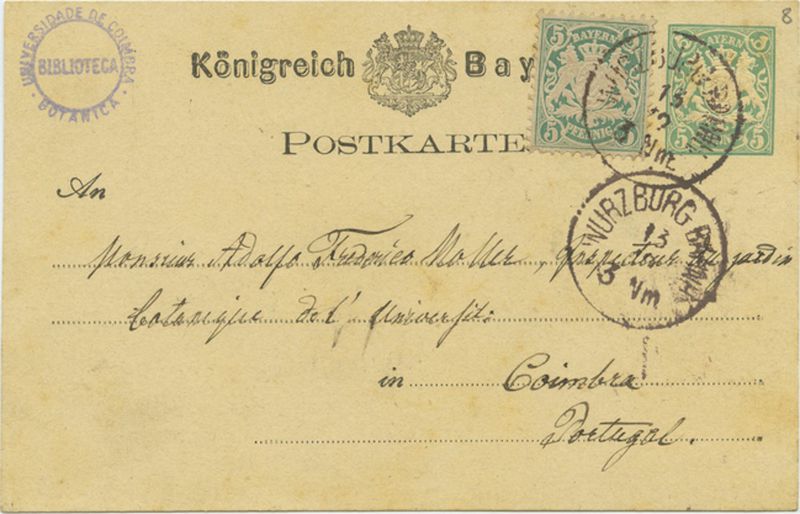 8
UNIVERSIDADE DE COIMBRA
BIBLIOTECA
BOTANICA
Königreich Bay
BAYERN
5 5
5 PFENNIG 5
BAYERN
5 5
POSTKARTE
WÜRZBURG BAHNH.
13
12
3 Nm.
An
WURZBURG BAHNH
13
3 Vm
Monsieur Adolfo Frederico Moller, Inspecteur du jardin
botanique de l' Universit:
in Coimbra
Portugal.